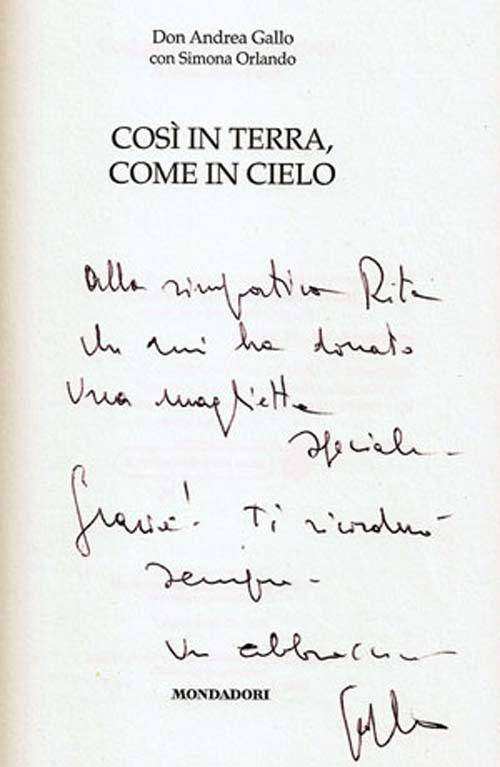 Don Andrea Gallo
con Simona Orlando
COSÌ IN TERRA,
COME IN CIELO
Alla simpatica Rita
che mi ha donato
una maglietta
speciale
Grazie! Ti ricorderò
sempre -
un abbraccio
MONDADORI
Gallo